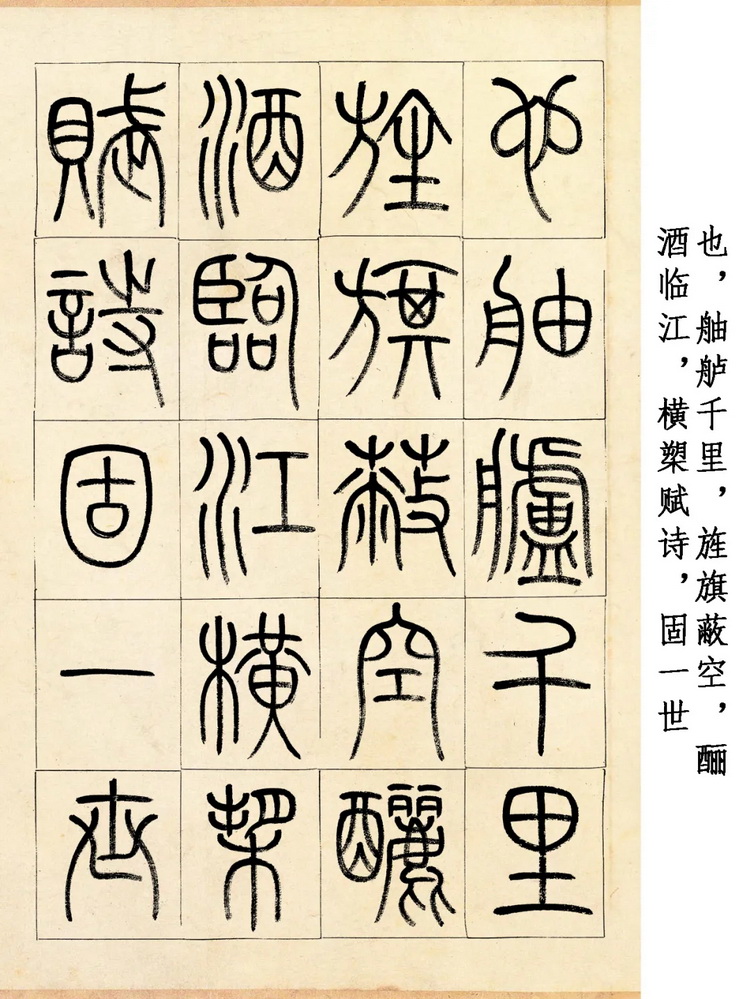 也，舳舻千里，旌旗蔽空，酾
酒临江，横槊赋诗，固一世
也舳艫千里
旌旗蔽空釃
酒臨江橫槊
賦詩固一世